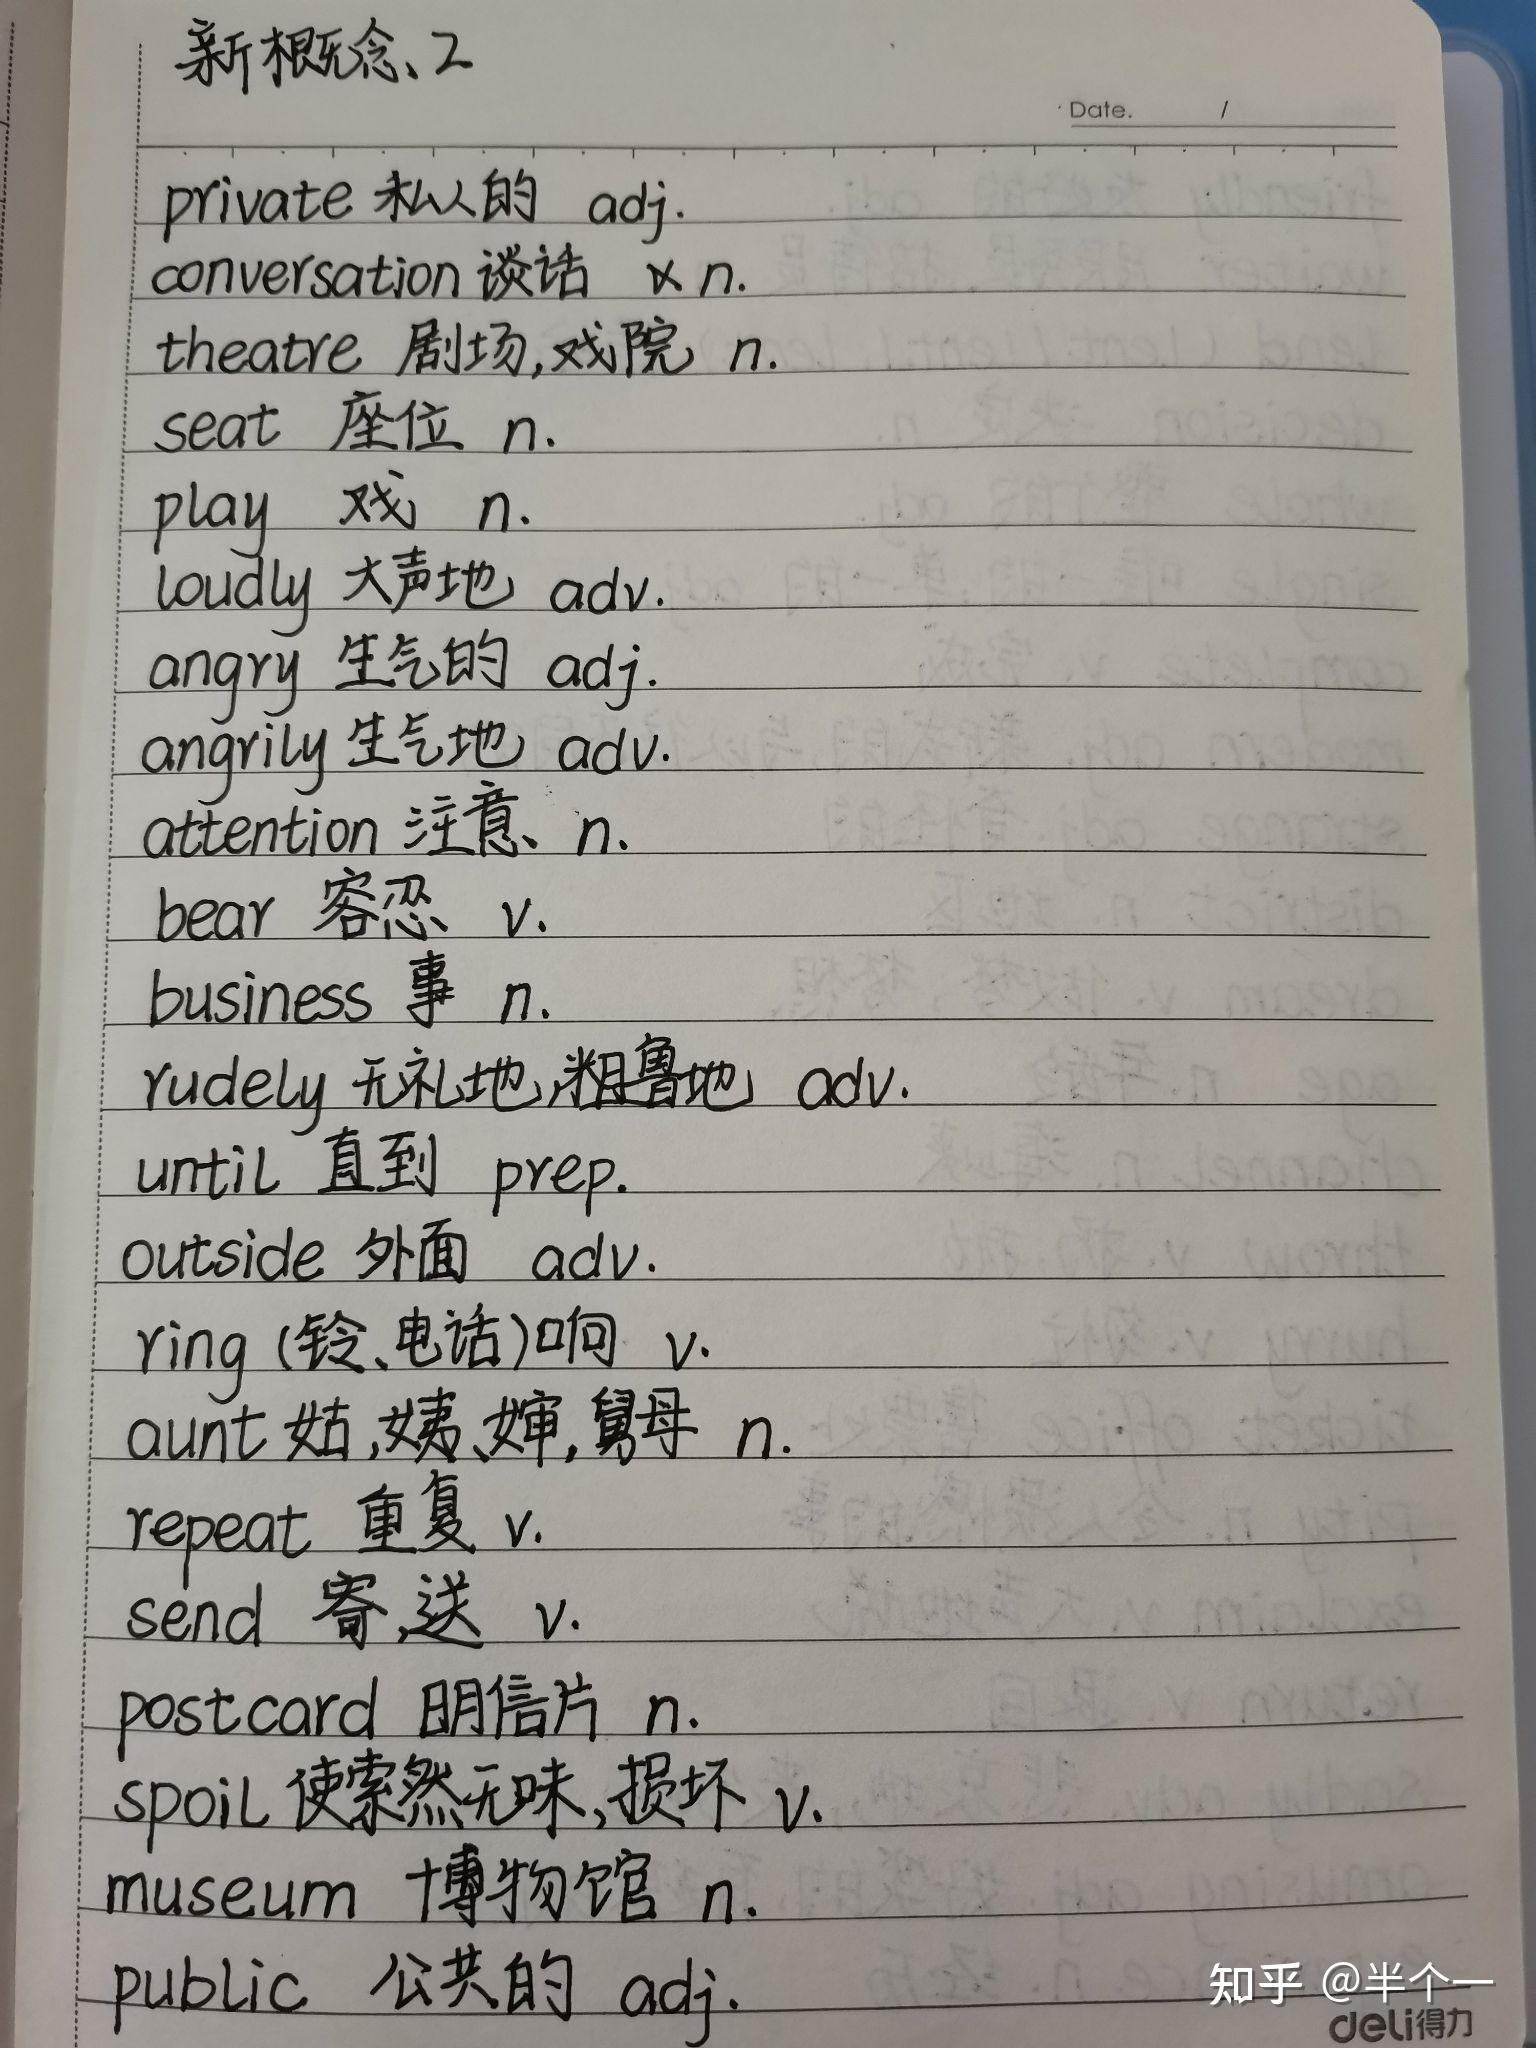 新概念、2
Date. /
private 私人的 adj.
conversation 谈话 n.
theatre 剧场,戏院 n.
seat 座位 n.
play 戏 n.
loudly 大声地 adv.
angry 生气的 adj.
angrily 生气地 adv.
attention 注意、 n.
bear 容忍 v.
business 事 n.
rudely 无礼地,粗鲁地 adv.
until 直到 prep.
outside 外面 adv.
ring (铃、电话)响 v.
aunt 姑,姨、婶,舅母 n.
repeat 重复 v.
send 寄,送 v.
postcard 明信片 n.
spoil 使索然无味,损坏 v.
museum 博物馆 n.
public 公共的 adj.
知乎 @半个一
deli得力